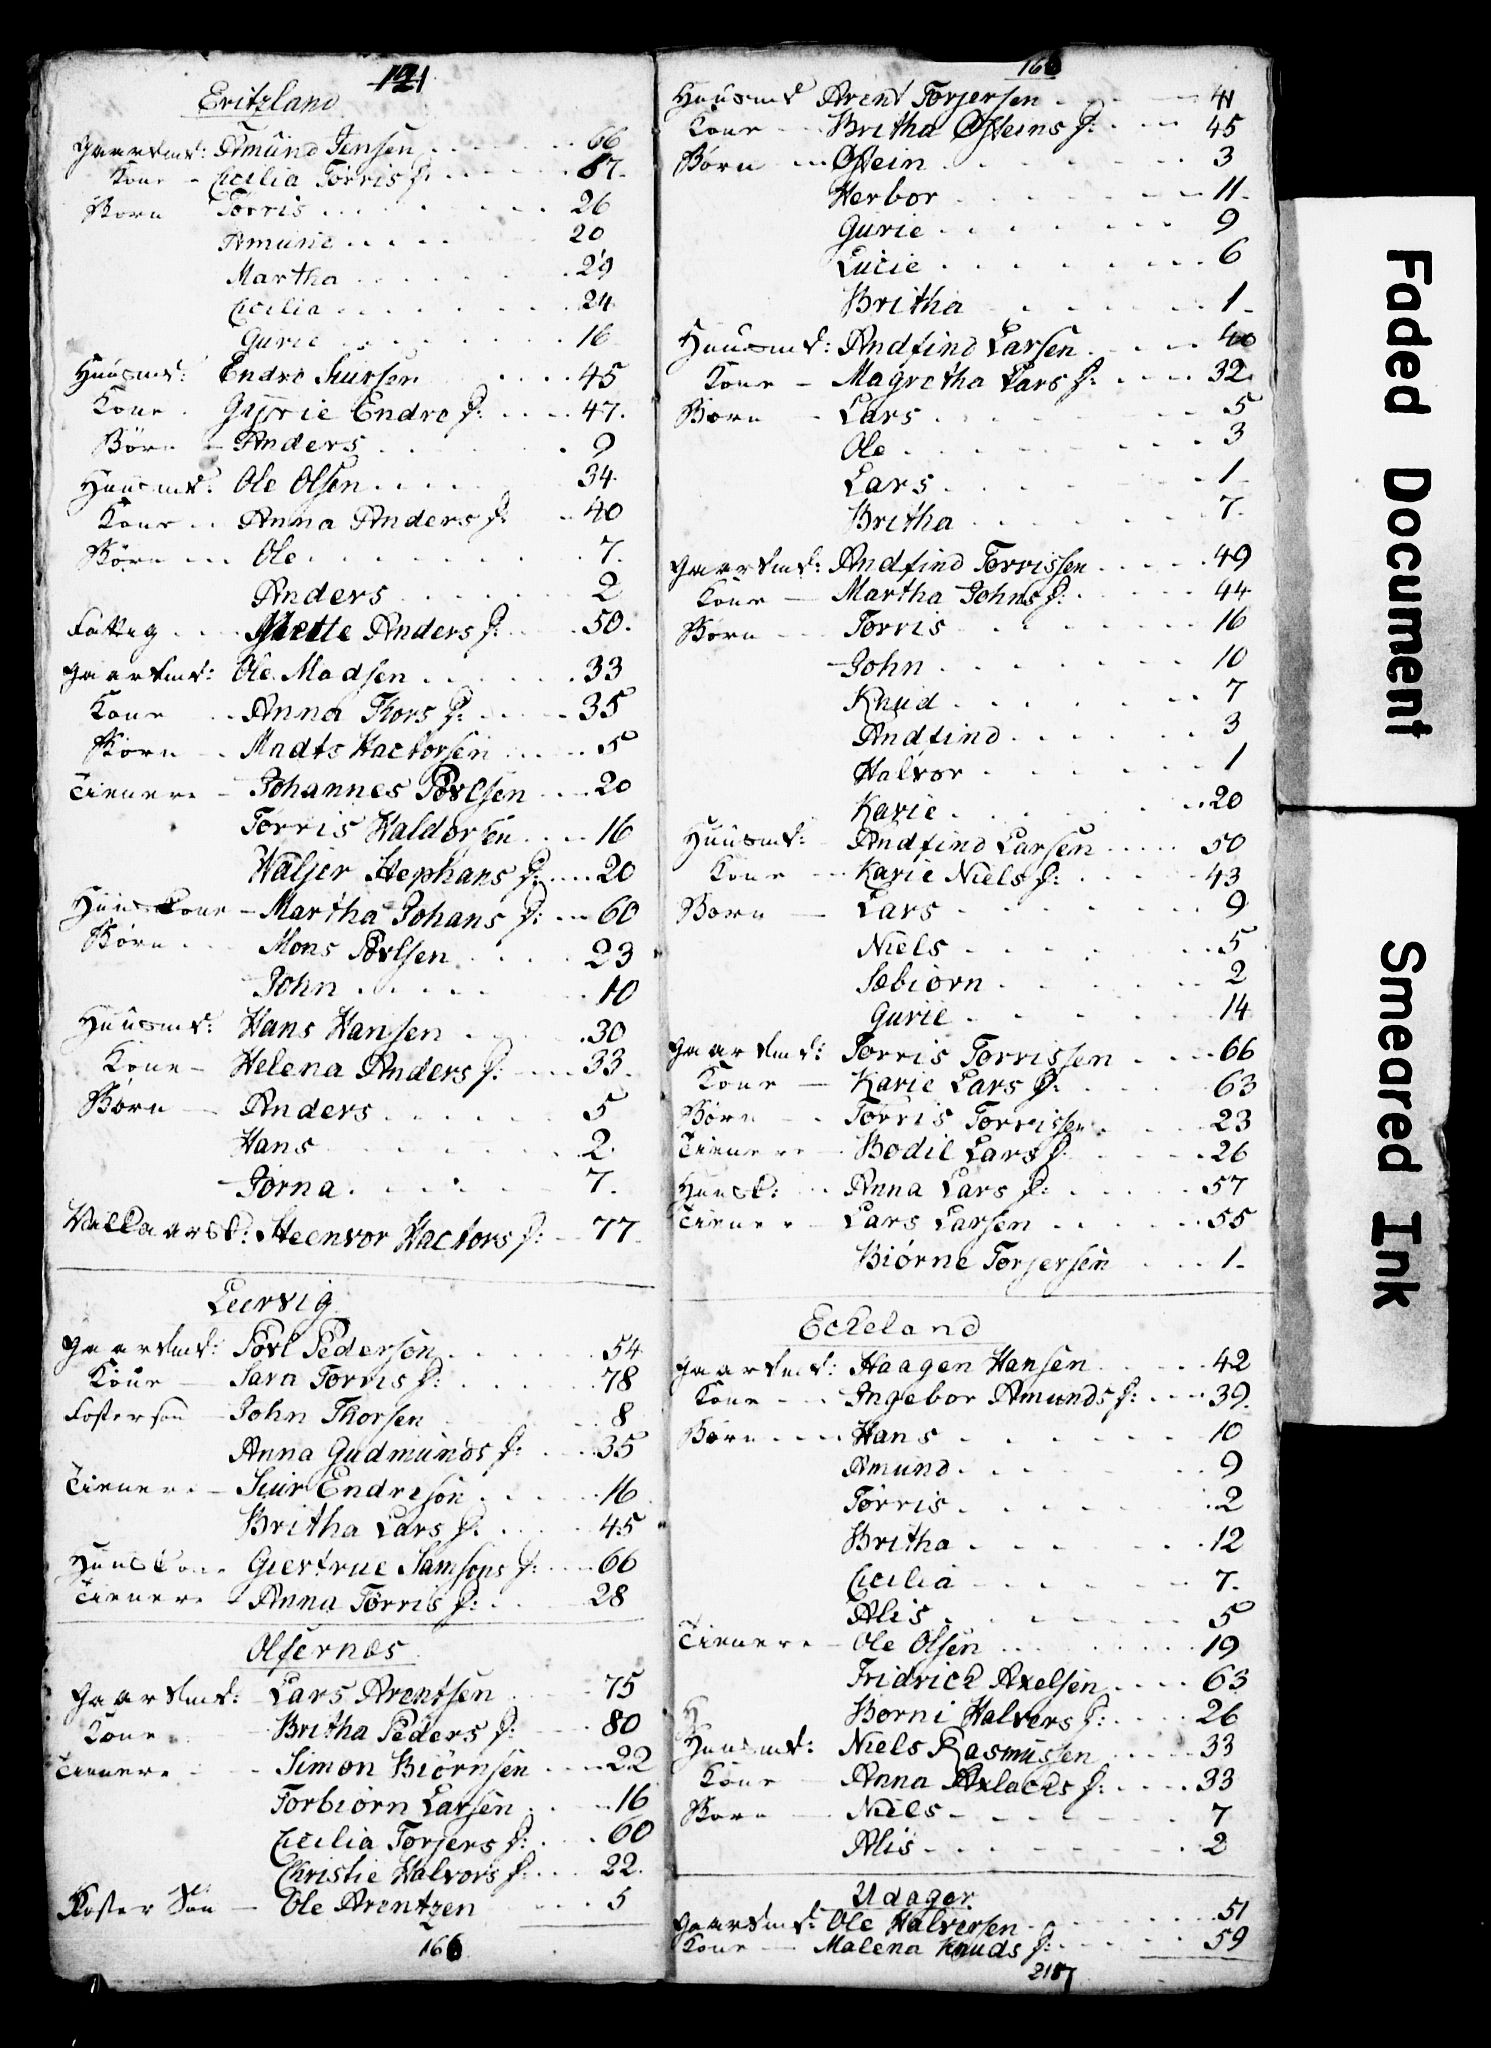 121
Eritzland
Gaardmd: Amund Jensen 66
Kone - Cicilia Torris D: 57.
Born Torris 26
Amund 20
Martha 29
Cicilia 24
Gurie 16
Huusmd: Endre Siursen 45
Kone Gurie Endre D: 47.
Börn - Anders 9
Huusmd: Ole Olsen 34.
Kone Anna Anders D: 40
Börn Ole 7.
Anders 2
Fattig Mette Anders D: 50.
Gaardmd: Ole Madsen 33
Kone Anna Thors D: 35
Börn Madts Hactorsen 5
Tienere - Johannes Povelsen 20
Torris Haldorsen 16
Valjer Stephans D: 20
Huuskone - Martha Johans D: 60
Börn Mons Povlsen 23
John 10
Huusmd: Hans Hansen 30
Kone - Helena Anders D: 33.
Börn - Anders 5
Hans 2.
Jorna 7.
Steenvor Hactors D: 77.
Leervig
Gaardmd: Povl Pederson 54
Kone - Sara Torris D: 78
Fosterson - John Thorsen 8
Anna Gudmunds D: 35
Tienere - Siur Endreson 16
Britha Lars D: 45
Huuskone Giertrue Samsons D: 66
Tienere Anna Torris D: 28
Olfernæs
Gaardmd: Lars Arentsen 75
Kone Britha Peders D: 80
Tienere Simon Biörnsen 22
Torbiorn Larsen 16
Cicilia Torjers D: 60
Christie Halvors D: 22.
Foster Sön - Ole Arentzen 5
166
166
Huusmd Arent Torjersen 41
Kone - Britha Østeins D: 45
Børn - Østein 3
Herbor 11.
Gurie 9
Lucie 6
Britha 1.
Huusmd: Andfind Larsen 40
Kone - Magretha Lars D: 32.
Born - Lars 5
Ole 3
Lars 1
Britha 7.
Gaardmd: Andfind Torrissen 49
Kone - Martha Johns D: 44
Børn Torris 16
John 10
Knud 7
Andfind 3
Halvor 1
Karie 20
Huusmd: Andfind Larsen 50
Kone - Karie Niels D: 43
Born - Lars 9
Niels 5
Sebiorn 2
Gurie 14
Gaardmd: Torris Torrissen 66
Kone - Karie Lars D: 63
Børn - Torris Torrissen 23
Tienere - Bodil Lars D: 26
Huusk: Anna Lars D: 57
Tienere - Lars Larsen 55
Biörne Torjersen 1.
Eckeland
Gaardmd: Haagen Hansen 42
Kone - Ingebor Amunds D: 39.
Børn Hans 10
Amund 9
Torris 2
Britha 12
Cicilia 7.
Alis 5
Tienere - Ole Olsen 19
Fridrich Axelsen 63
H Borni Halvers D: 26
Huusmd: Niels Rasmussen 33
Kone - Anna Axlachs D: 33
Born - Niels 7
Alis 2
Udager
Gaardmd: Ole Halversen 51
Kone - Malena Knuds D: 59
2187
Faded Document
Smeared Ink